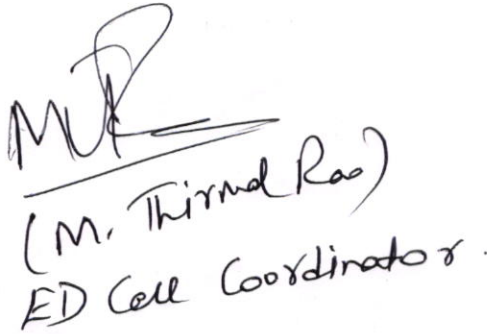 (M. Thirmal Rao)
ED Cell Coordinator.